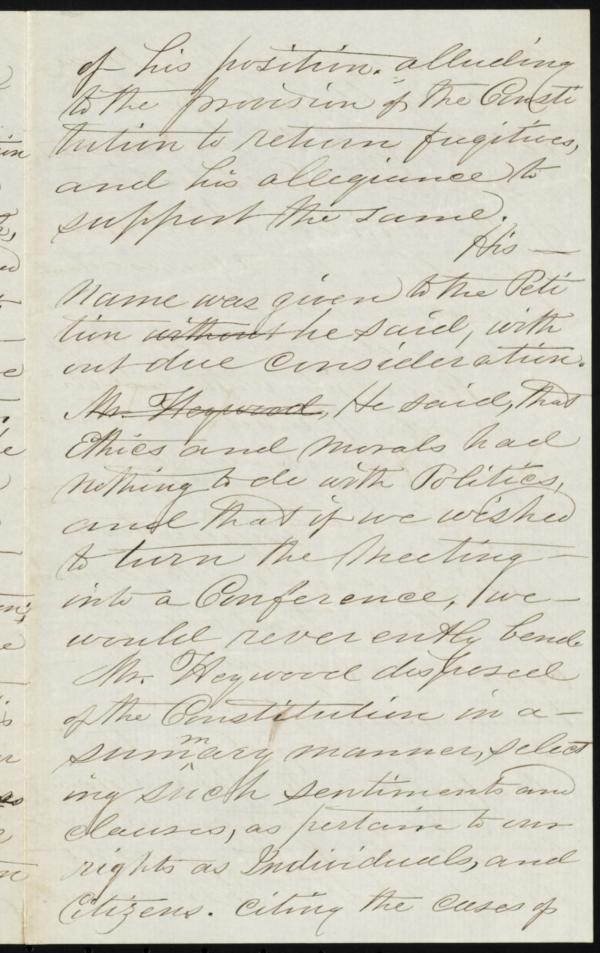 of his position. alluding
to the provision of the Consti
tution to return fugitives,
and his allegiance to
support the same.
His —
name was given to the Peti
tion without he said, with
out due consideration.
Mr. Heywood, He said, that
Ethics and morals had
nothing to do with Politics,
and that if we wished
to turn the meeting —
into a Conference, we —
would reverently bend.
Mr. Heywood disposed
of the Constitution in a —
summary manner, select
ing such sentiments and
clauses, as pertain to our
rights as Individuals, and
Citizens. citing the cases of